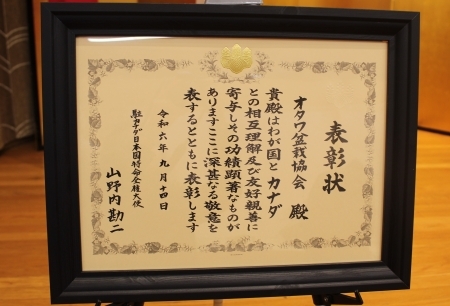 表彰状
オタワ盆栽協会 殿
貴殿はわが国とカナダ
との相互理解及び友好親善に
寄与しその功績顕著なものが
ありますここに深甚なる敬意を
表するとともに表彰します
令和六年九月十四日
駐カナダ日本国特命全権大使
山野内勘二